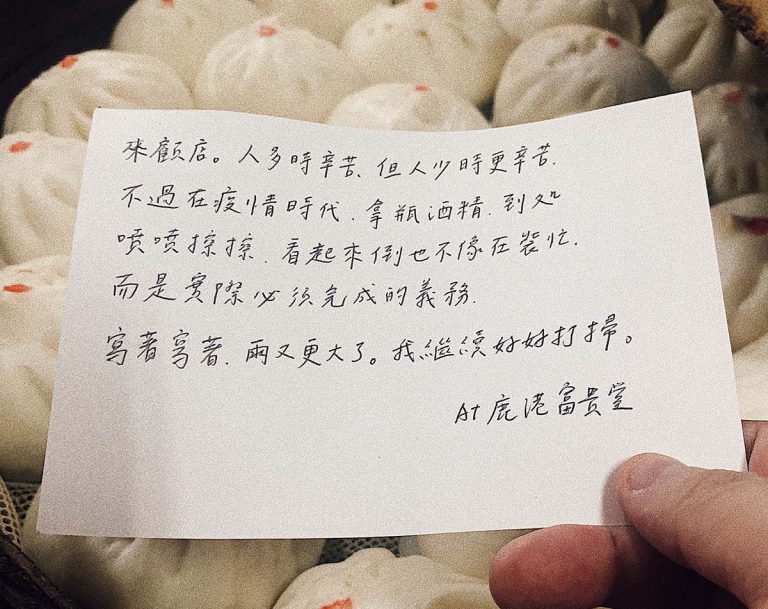 來顧店。人多時辛苦、但人少時更辛苦.
不過在疫情時代、拿瓶酒精、到处
噴噴擦擦、看起來倒也不像在裝忙.
而是實際必須完成的義務.
寫著寫著、雨又更大了。我繼續好好打掃。
At 鹿港富貴堂